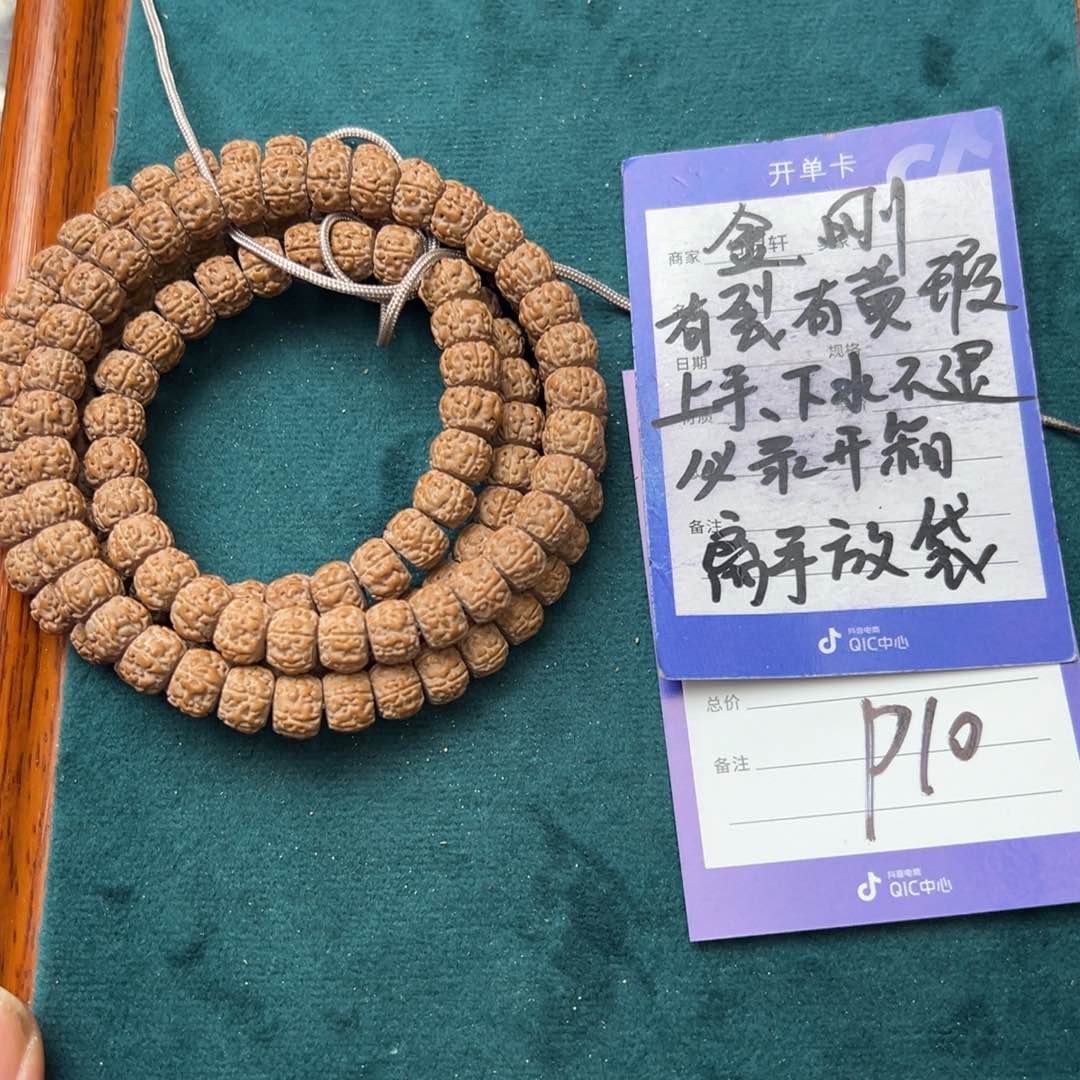 开单卡
金刚
商家 轩
有裂有黄瑕
日期 规格
上手、下水不退
必录开箱
备注
离手放袋
抖音电商
QIC中心
总价
P10
备注
抖音电商
QIC中心